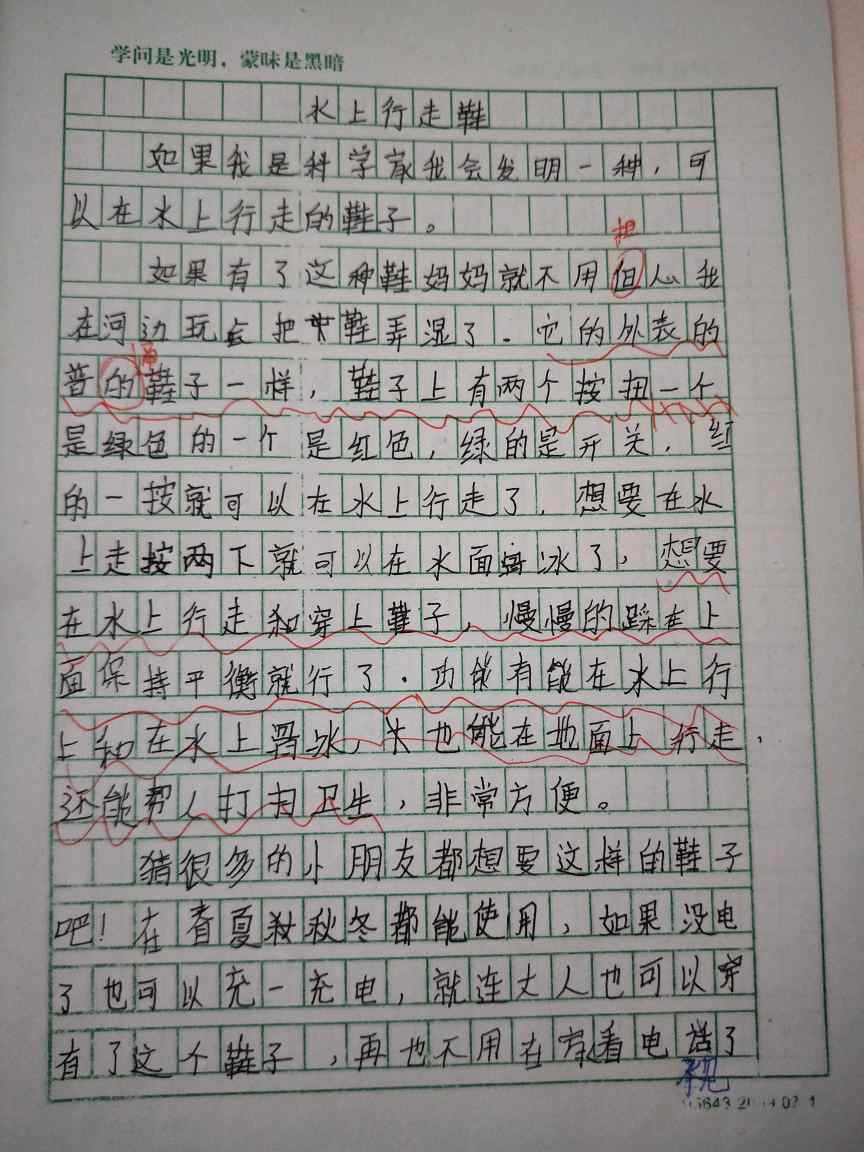 学问是光明，蒙昧是黑暗
水上行走鞋
如果我是科学家我会发明一种，可
以在水上行走的鞋子。
担
如果有了这种鞋妈妈就不用但心我
在河边玩会把鞋弄湿了．它的外表的
通
普的鞋子一样，鞋子上有两个按扭一个
是绿色的一个是红色，绿的是开关．红
的一按就可以在水上行走了．想要在水
上走按两下就可以在水面冰了，想要
在水上行走和穿上鞋子，慢慢的踩在上
面保持平衡就行了．功能有能在水上行
上和在水上冰，也能在地面上行走，
还能帮人打扫卫生，非常方便。
猜很多的小朋友都想要这样的鞋子
吧！在春夏秋冬都能使用，如果没电
了也可以充一充电，就连大人也可以穿
有了这个鞋子，再也不用在家看电话了